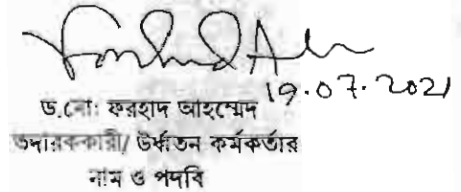 19.07.2021
ড.মো: ফরহাদ আহম্মেদ
তদারককারী/ উর্ধ্বতন কর্মকর্তার
নাম ও পদবি